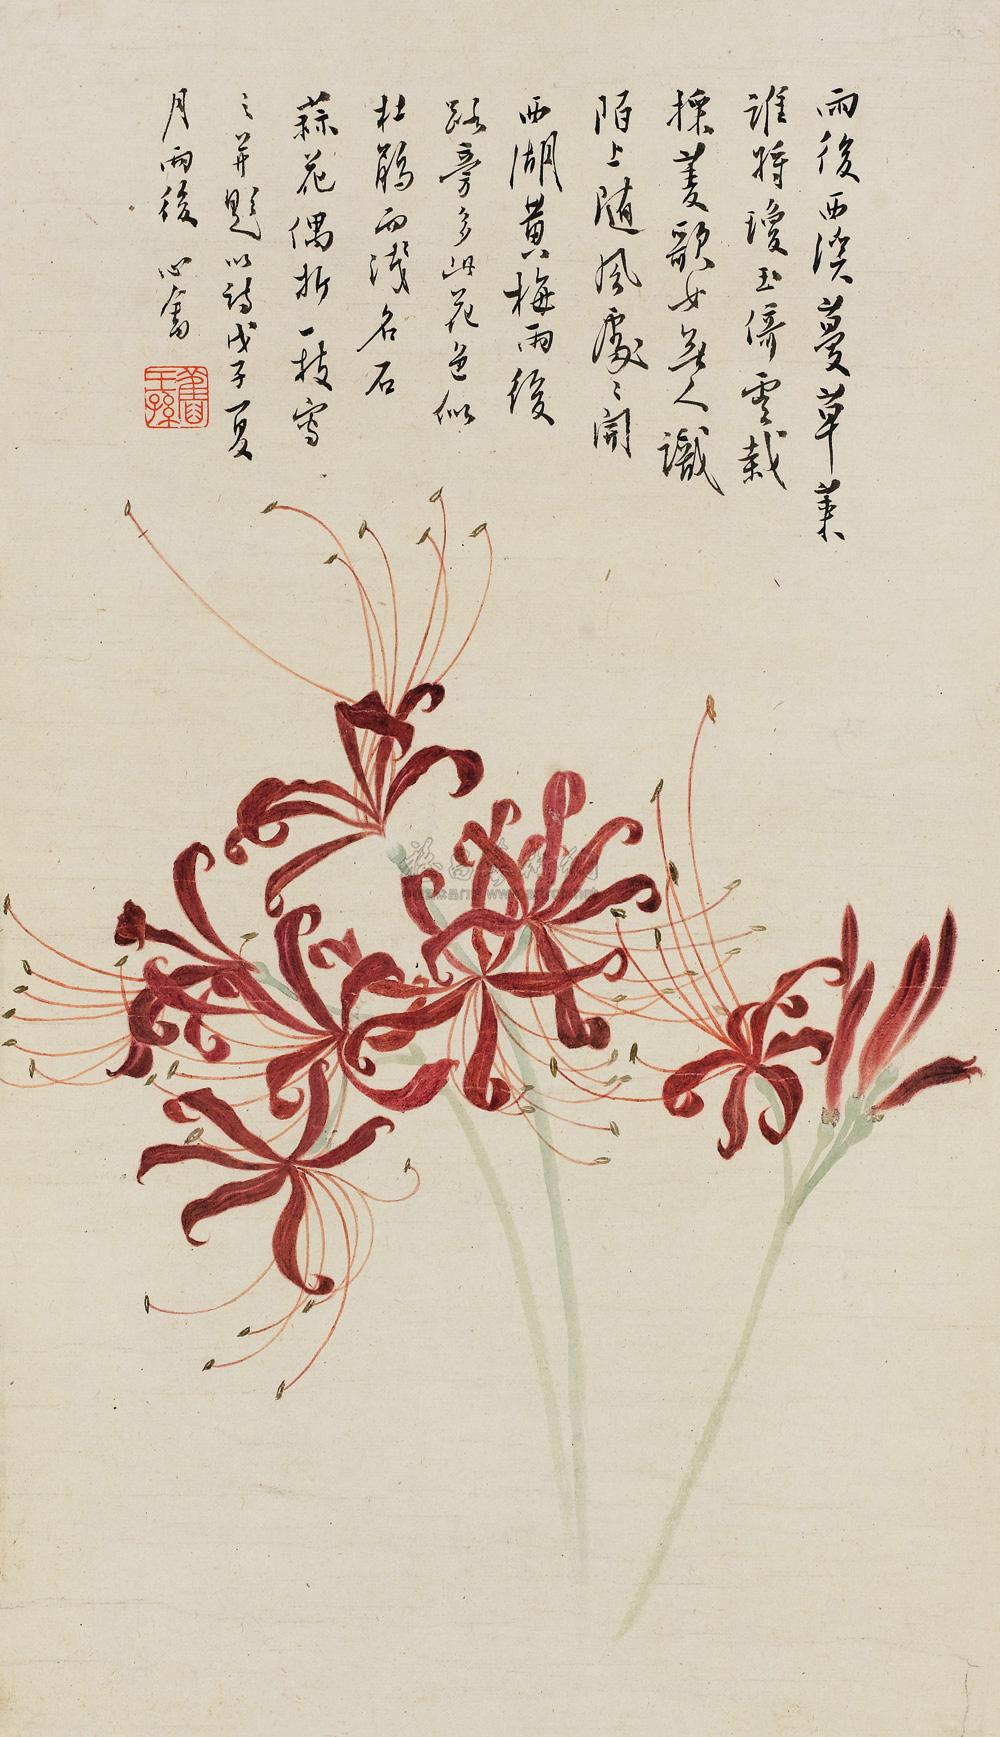 雨後西溪蔓草萊
誰將瓊玉倚雲栽
採菱歌女無人識
陌上隨風處〻開
西湖黃梅雨後
路旁多此花色似
杜鵑而淺名石
蒜花偶折一枝寫
之并題以詩戊子夏
月雨後 心畬
舊王孫